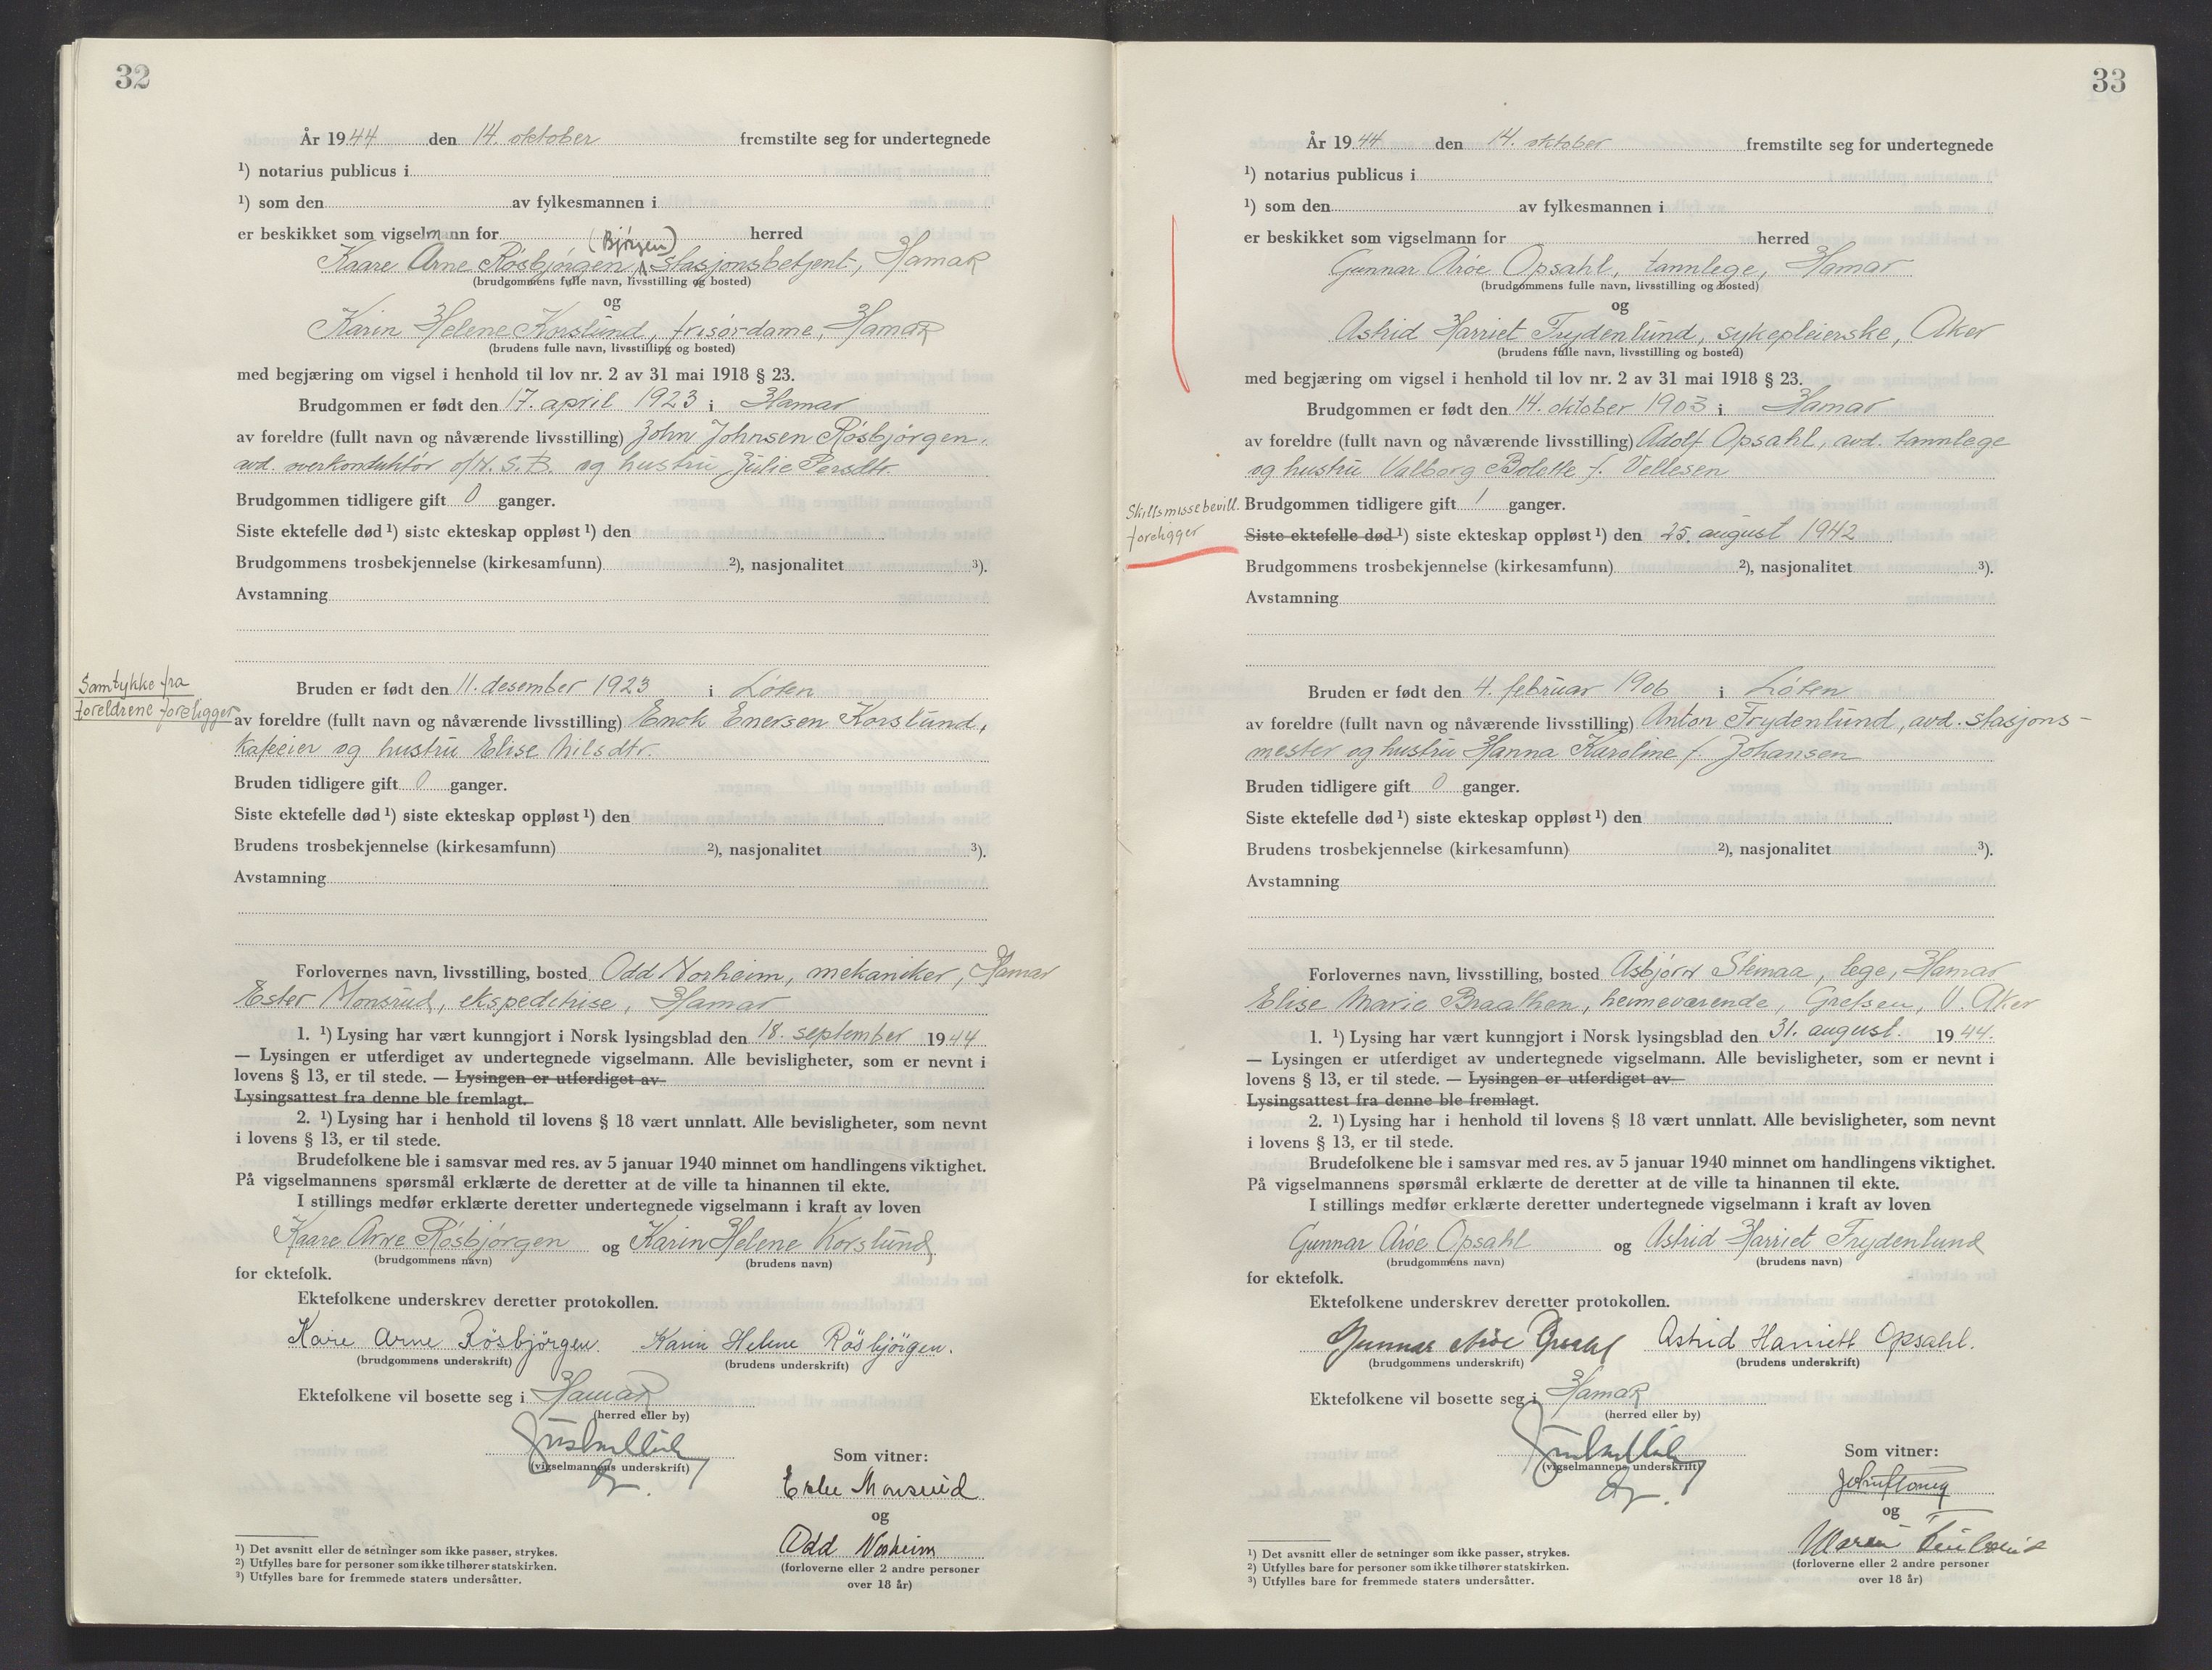 32
År 1944 den 14. oktober fremstilte seg for undertegnede
¹) notarius publicus i
¹) som den av fylkesmannen i
er beskikket som vigselmann for herred
(Bjørgen)
Kaare Arne Rösbjörgen, stasjonsbetjent, Hamar
(brudgommens fulle navn, livsstilling og bosted)
og
Karin Helene Korslund, frisørdame, Hamar
(brudens fulle navn, livsstilling og bosted)
med begjæring om vigsel i henhold til lov nr. 2 av 31 mai 1918 § 23.
Brudgommen er født den 17. april 1923 i Hamar
av foreldre (fullt navn og nåværende livsstilling) John Johnsen Rösbjörgen,
avd. overkonduktör v/N.S.B. og hustru Julie Persdtr.
Brudgommen tidligere gift 0 ganger.
Siste ektefelle død ¹) siste ekteskap oppløst ¹) den
Brudgommens trosbekjennelse (kirkesamfunn) ²), nasjonalitet ³).
Avstamning
Samtykke fra
foreldrene foreligger
Bruden er født den 11. desember 1923 i Löten
av foreldre (fullt navn og nåværende livsstilling) Enok Enersen Korslund,
Kafeeier og hustru Elise Nilsdtr.
Bruden tidligere gift 0 ganger.
Siste ektefelle død ¹) siste ekteskap oppløst ¹) den
Brudens trosbekjennelse (kirkesamfunn) ²), nasjonalitet ³).
Avstamning
Forlovernes navn, livsstilling, bosted Odd Norheim, mekaniker, Hamar
Ester Monsrud, ekspeditrise, Hamar
1. ¹) Lysing har vært kunngjort i Norsk lysingsblad den 18. september 1944
— Lysingen er utferdiget av undertegnede vigselmann. Alle bevisligheter, som er nevnt i
lovens § 13, er til stede. — Lysingen er utferdiget av
Lysingsattest fra denne ble fremlagt.
2. ¹) Lysing har i henhold til lovens § 18 vært unnlatt. Alle bevisligheter, som nevnt
i lovens § 13, er til stede.
Brudefolkene ble i samsvar med res. av 5 januar 1940 minnet om handlingens viktighet.
På vigselmannens spørsmål erklærte de deretter at de ville ta hinannen til ekte.
I stillings medfør erklærte deretter undertegnede vigselmann i kraft av loven
Kaare Arne Rösbjörgen og Karin Helene Korslund
(brudgommens navn) (brudens navn)
for ektefolk.
Ektefolkene underskrev deretter protokollen.
Kåre Arne Rösbjörgen. Karin Helene Rösbjörgen.
(brudgommens underskrift) (brudens underskrift)
Ektefolkene vil bosette seg i Hamar
(herred eller by)
(vigselmannens underskrift)
Som vitner:
Ester Monsrud
og
Odd Norheim
(forloverne eller 2 andre personer
over 18 år)
¹) Det avsnitt eller de setninger som ikke passer, strykes.
²) Utfylles bare for personer som ikke tilhører statskirken.
³) Utfylles bare for fremmede staters undersåtter.
33
År 1944 den 14. oktober fremstilte seg for undertegnede
¹) notarius publicus i
¹) som den av fylkesmannen i
er beskikket som vigselmann for herred
Gunnar Aröe Opsahl, tannlege, Hamar
(brudgommens fulle navn, livsstilling og bosted)
og
Astrid Harriet Frydenlund, sykepleierske, Aker
(brudens fulle navn, livsstilling og bosted)
med begjæring om vigsel i henhold til lov nr. 2 av 31 mai 1918 § 23.
Brudgommen er født den 14. oktober 1903 i Hamar
av foreldre (fullt navn og nåværende livsstilling) Adolf Opsahl, avd. tannlege
og hustru Valborg Bolette f. Vellesen
Skillsmissebevill.
foreligger
Brudgommen tidligere gift 1 ganger.
Siste ektefelle død ¹) siste ekteskap oppløst ¹) den 25. august 1942
Brudgommens trosbekjennelse (kirkesamfunn) ²), nasjonalitet ³).
Avstamning
Bruden er født den 4. februar 1906 i Löten
av foreldre (fullt navn og nåværende livsstilling) Anton Frydenlund, avd. stasjons-
mester og hustru Hanna Karoline f. Johansen
Bruden tidligere gift 0 ganger.
Siste ektefelle død ¹) siste ekteskap oppløst ¹) den
Brudens trosbekjennelse (kirkesamfunn) ²), nasjonalitet ³).
Avstamning
Forlovernes navn, livsstilling, bosted Asbjørn Stemaa, lege, Hamar
Elise Marie Braathen, heimeværende, Grefsen, V. Aker
1. ¹) Lysing har vært kunngjort i Norsk lysingsblad den 31. august. 1944.
— Lysingen er utferdiget av undertegnede vigselmann. Alle bevisligheter, som er nevnt i
lovens § 13, er til stede. — Lysingen er utferdiget av
Lysingsattest fra denne ble fremlagt.
2. ¹) Lysing har i henhold til lovens § 18 vært unnlatt. Alle bevisligheter, som nevnt
i lovens § 13, er til stede.
Brudefolkene ble i samsvar med res. av 5 januar 1940 minnet om handlingens viktighet.
På vigselmannens spørsmål erklærte de deretter at de ville ta hinannen til ekte.
I stillings medfør erklærte deretter undertegnede vigselmann i kraft av loven
Gunnar Aröe Opsahl og Astrid Harriet Frydenlund
(brudgommens navn) (brudens navn)
for ektefolk.
Ektefolkene underskrev deretter protokollen.
Gunnar Aröe Opsahl Astrid Harriett Opsahl.
(brudgommens underskrift) (brudens underskrift)
Ektefolkene vil bosette seg i Hamar
(herred eller by)
(vigselmannens underskrift)
Som vitner:
og
(forloverne eller 2 andre personer
over 18 år)
¹) Det avsnitt eller de setninger som ikke passer, strykes.
²) Utfylles bare for personer som ikke tilhører statskirken.
³) Utfylles bare for fremmede staters undersåtter.